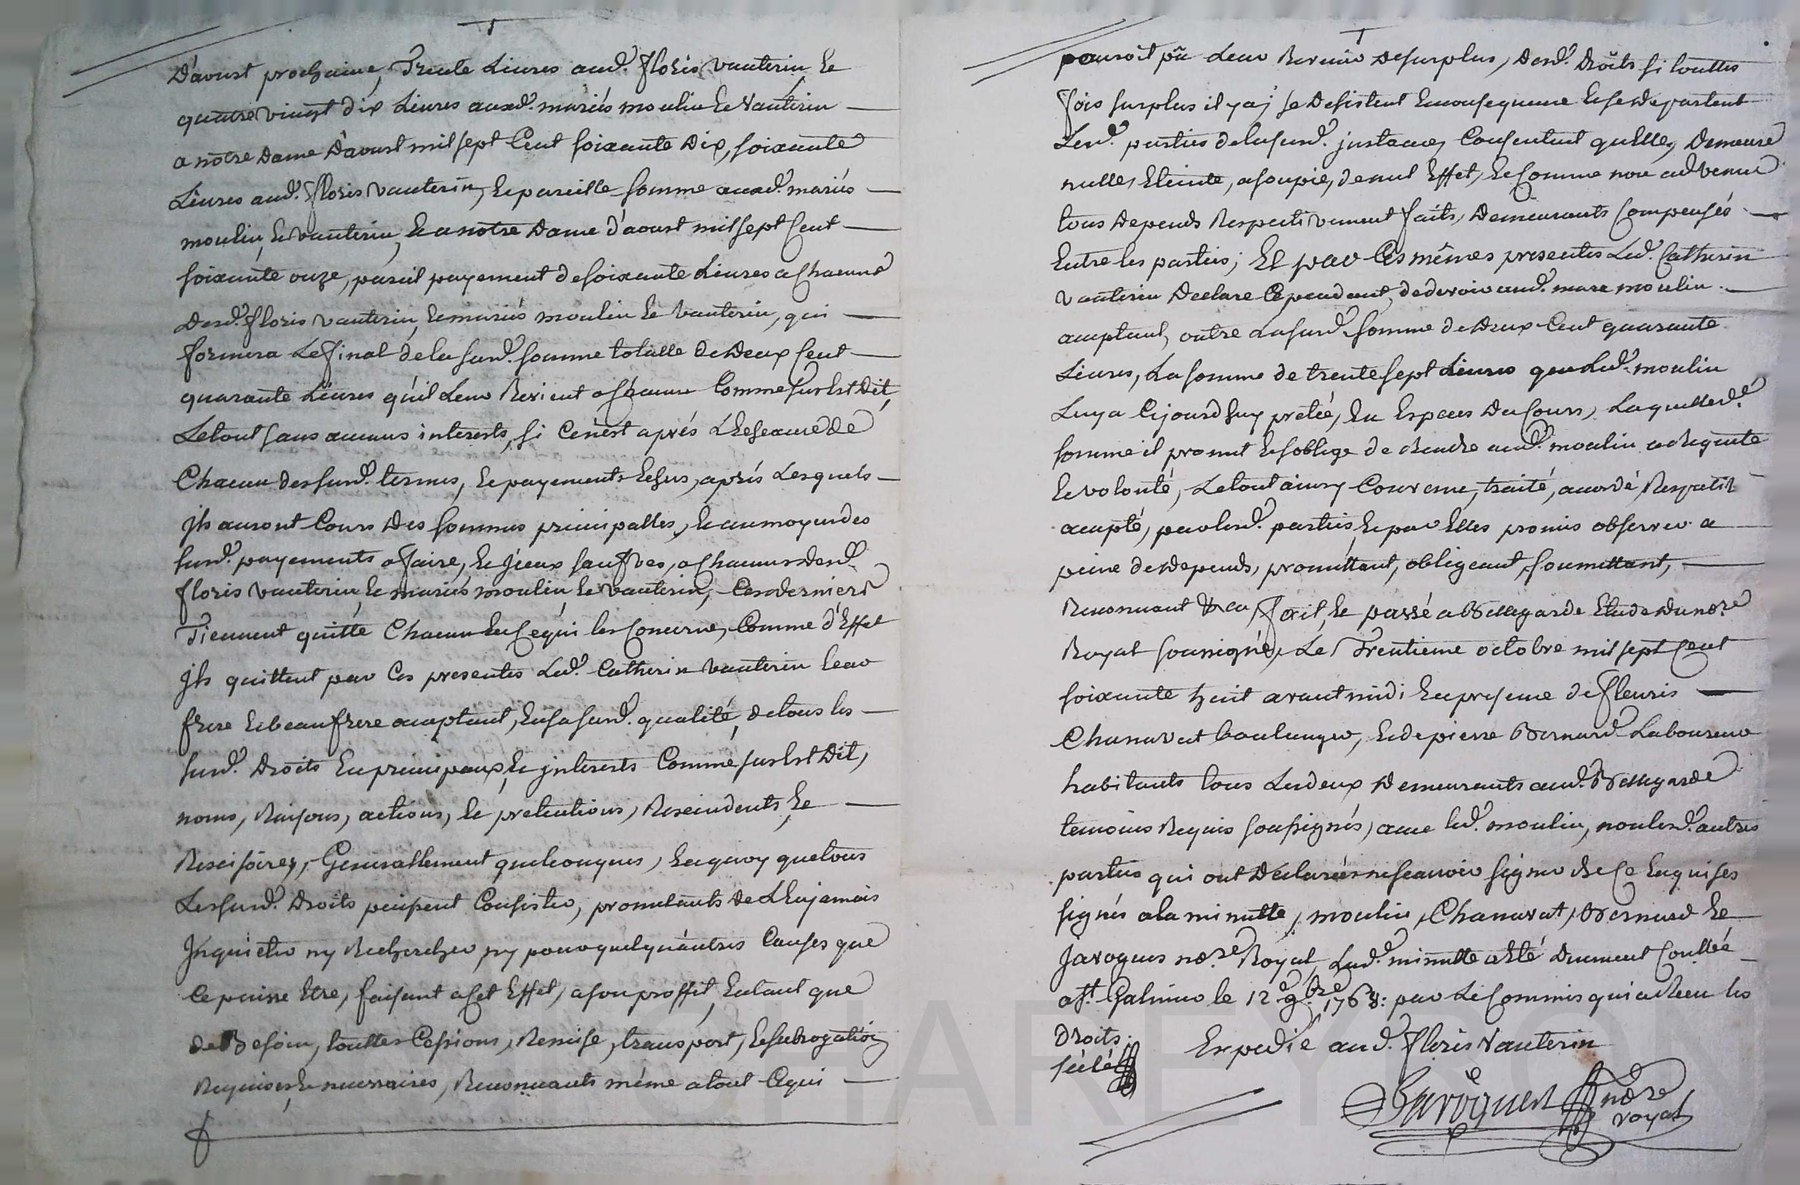 D'aoust prochaine, Trente Livres aud.t floris vauterin, Ee
quatre vingt dix Livres auxd.t mariés moulin Ee Vauterin
a notre Dame D'aoust mil sept Cent soixante Dix, soixante
Livres aud.t floris Vauterin, Ee pareille somme auxd.t mariés
moulin, Ee vauterin, Ee a notre Dame d'aoust mil sept Cent
soixante onze, pareil payement de soixante Livres a Chacune
desd.t floris vauterin, Ee mariés moulin Ee Vauterin, qui
formera Le final de la susd.t somme totalle de Deux Cent
quarante Livres qu'il Leur Revient a Chacun Comme sus Est Dit,
Le tout sans aucuns interests, si Ce n'est aprés L'Echeance de
Chacun des susd.t termes, Ee payements Echus, aprés Lesquels
jls auront Cours Des sommes principalles, Ee au moyen des
susd.t payements a faire, Ee jceux saufves, a Chacuns desd.t
floris vauterin Ee mariés moulin Ee Vauterin, Ces derniers
Tiennent quitte Chacun En Ce qui les Concerne, Comme d'Effet
jls quittent par Ces presentes Led.t Catherin Vauterin Leur
frere Ee beaufrere acceptant, En sa susd.t qualité, de tous les
susd.t Droits En principaux, Ee jnterests Comme sus Est Dit,
noms, Raisons, actions, Ee pretentions, Rescindents, Ee
Rescisoires, Generallement quelconques, En quoy que tous
Les susd.t Droits puissent Consister, promettants de L'En jamais
Jnquieter ny Rechercher, ny pour quelqu'autres Causes que
Ce puisse Etre, faisant a Cet Effet, a son proffit, Entant que
de Besoin, touttes Cessions, Remise, transport, Ee subrogation
Requises, Ee necessaires, Renonceants même a tout Ce qui
pouroit pñt Leur Revenir de surplus, Desd.t Droits si touttes
fois surplus il y a; se Desistent En consequence Ee se departent
Lesd.t parties de la susd.t jnstance, Consentent qu'Elle, Demeure
nulle, Eteinte, assoupie, de nul Effet, Ee Comme non advenue
tous Depends Respectivement faits, Demeurants Compensés
Entre les parties; Et par Ces mêmes presentes Led.t Catherin
Vauterin Declare Cependant, de devoir aud.t marc moulin
acceptant, outre La susd.t somme de Deux Cent quarante
Livres, La somme de trente sept Livres que Led.t moulin
Luy a Cejourd'huy preté, En Espèces Du Cours, Laquelle d.te
somme il promet Ee s'oblige de Rendre aud.t moulin a Requete
Ee volonté, Le tout ainsy Convenu, traité, accordé, Respectif
accepté, par lesd.t parties, Ee par Elles promis observer a
peine de depends, promettant, obligeant, soumettant,
Renonceant &ca, fait, Ee passé a Bellegarde Etude du no.re
Royal soussigné, Le Trentieme octobre mil sept Cent
soixante huit avant midi En presence de fleuris
Chanavat boulanger, Ee de pierre Bernard Laboureur
habitants tous Les deux Demeurants aud.t Bellegarde
temoins Requis soussignés, avec led.t moulin, non lesd.t autres
parties qui ont Déclaré ne scavoir signer de Ce Enquises
signés a la minutte, moulin, Chanavat, Bernard Ee
Javogues no.re Royal, Lad.t minutte a Eté Duement Contlée
a St. Galmier le 12.e 9.bre 1768: par Le Commis qui a Receu les
Droits.
scélé
Expedié aud.t floris Vauterin
Javogues no.re
royal
CHAREYRON